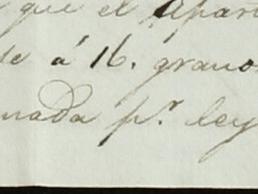 que el Apar
de á 16. grano
nada p.r ley